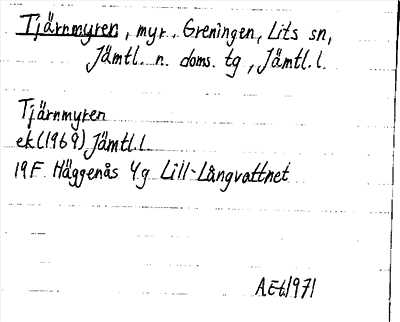 Tjärnmyren, myr. Greningen, Lits sn,
Jämtl. n. doms. tg, Jämtl. l.
Tjärnmyren
ek (1969) Jämtl. l.
19F Häggenås 4g Lill-Långvattnet
A.Et. 1971